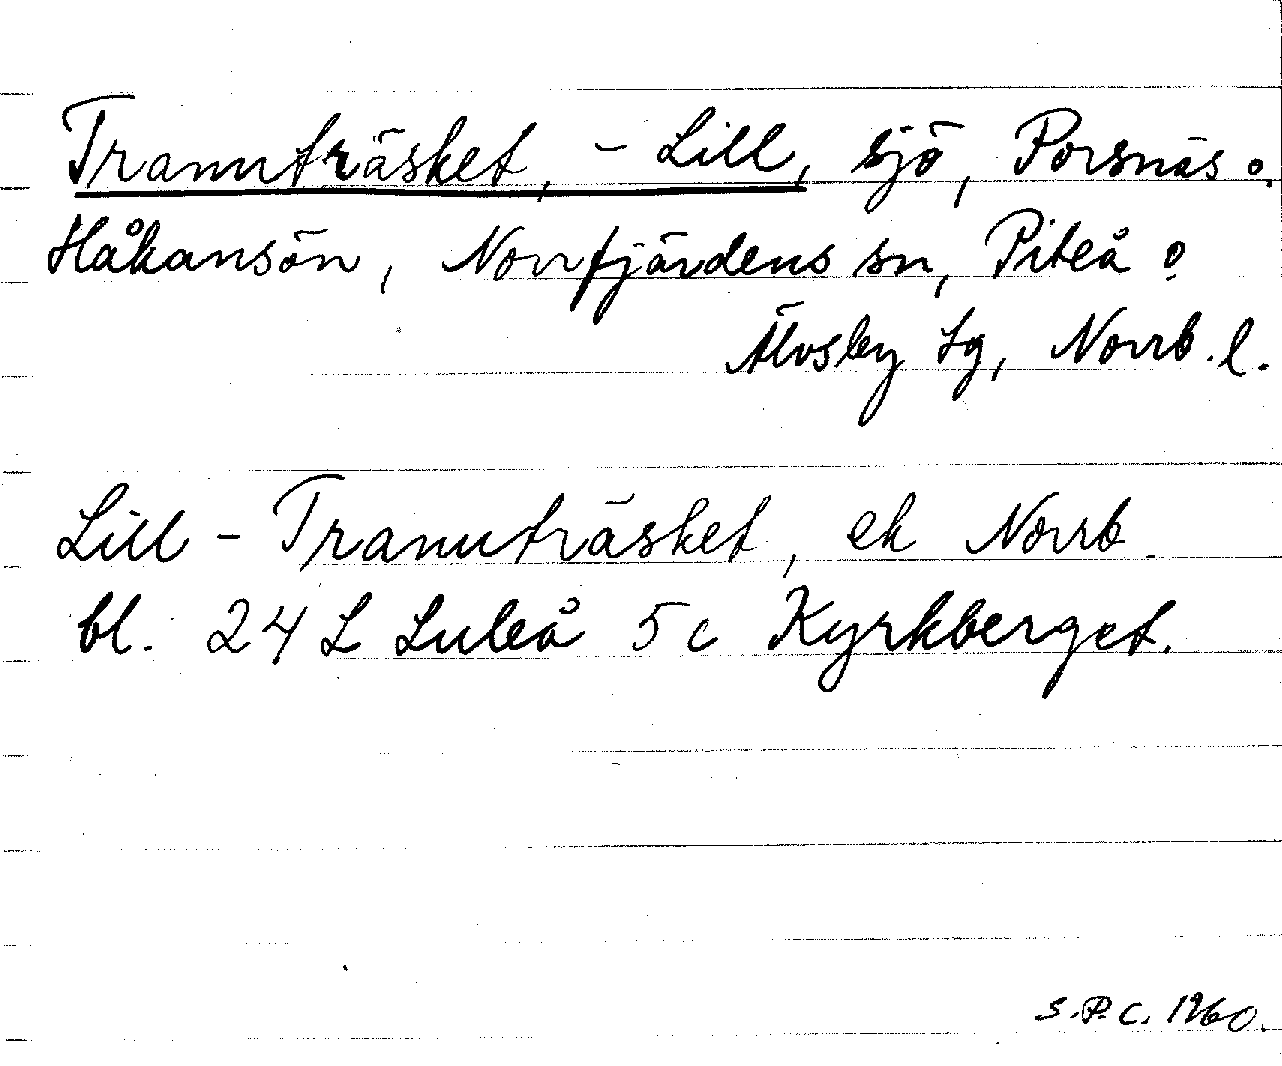 Tranuträsket, - Lill, sjö, Porsnäs o.
Håkansön, Norrfjärdens sn, Piteå o
Älvsby tg, Norrb. l.
Lill - Tranuträsket, ek Norrb.
bl. 24 L Luleå 5 c Kyrkberget.
S.P.C. 1960.